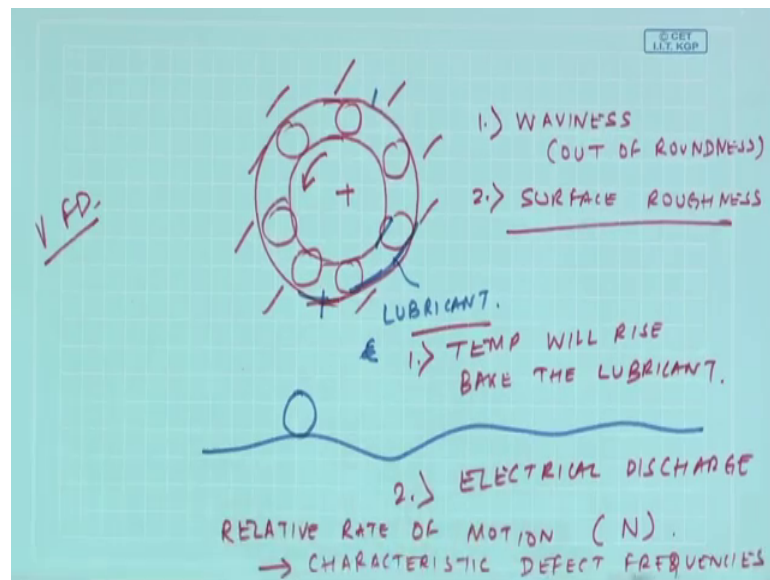 © CET
I.I.T. KGP
1.) WAVINESS
(OUT OF ROUNDNESS)
2.) SURFACE ROUGHNESS
V FD.
LUBRICANT.
1.) TEMP WILL RISE
BAKE THE LUBRICANT.
2.) ELECTRICAL DISCHARGE
RELATIVE RATE OF MOTION (N).
→ CHARACTERISTIC DEFECT FREQUENCIES